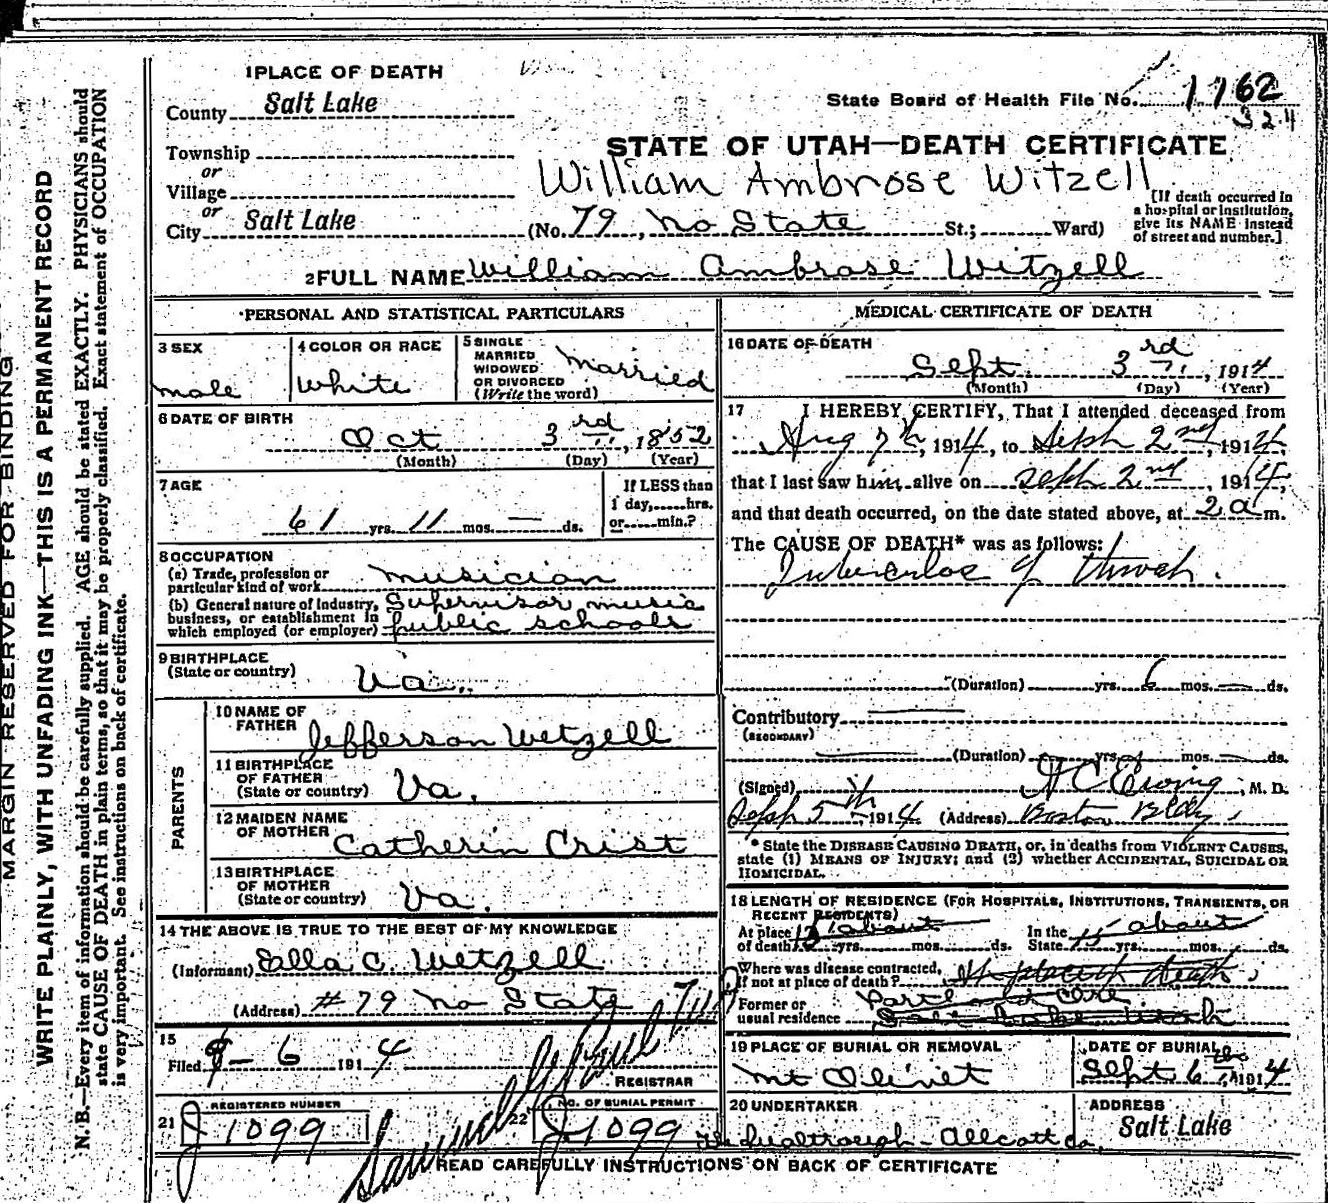 1 PLACE OF DEATH
County Salt Lake
State Board of Health File No. 1162
324
Township
or
Village
or
City Salt Lake
STATE OF UTAH—DEATH CERTIFICATE
William Ambrose Witzell
(No. 79, No State St.; Ward)
[If death occurred in
a hospital or institution,
give its NAME instead
of street and number.]
2 FULL NAME William Ambrose Witzell
PERSONAL AND STATISTICAL PARTICULARS
3 SEX
male
4 COLOR OR RACE
White
5 SINGLE
MARRIED
WIDOWED
OR DIVORCED
(Write the word)
Married
6 DATE OF BIRTH
Oct 3rd, 1852
(Month) (Day) (Year)
7 AGE
61 yrs. 11 mos. — ds.
If LESS than
1 day,.....hrs.
or.....min.?
8 OCCUPATION
(a) Trade, profession or
particular kind of work
musician
(b) General nature of Industry,
business, or establishment in
which employed (or employer)
Supervisor music
public schools
9 BIRTHPLACE
(State or country)
Va.
PARENTS
10 NAME OF
FATHER
Jefferson Wetzell
11 BIRTHPLACE
OF FATHER
(State or country)
Va.
12 MAIDEN NAME
OF MOTHER
Catherin Crist
13 BIRTHPLACE
OF MOTHER
(State or country)
Va.
14 THE ABOVE IS TRUE TO THE BEST OF MY KNOWLEDGE
(Informant) Ella C. Wetzell
(Address) #79 No State
15
Filed 9-6 1914
REGISTRAR
21 REGISTERED NUMBER
J 1099
22 NO. OF BURIAL PERMIT
J 1099
MEDICAL CERTIFICATE OF DEATH
16 DATE OF DEATH
Sept. 3rd, 1914
(Month) (Day) (Year)
17 I HEREBY CERTIFY, That I attended deceased from
Aug 7th, 1914, to Seph 2nd, 1914,
that I last saw him alive on Seph 2nd, 1914,
and that death occurred, on the date stated above, at 2 a m.
The CAUSE OF DEATH* was as follows:
Tuberculos of throah.
(Duration) yrs. 6 mos. — ds.
Contributory
(SECONDARY)
(Duration) yrs. mos. — ds.
(Signed) H C Ewing, M. D.
Seph 5th 1914 (Address) Boston Bldg.
* State the DISEASE CAUSING DEATH, or, in deaths from VIOLENT CAUSES,
state (1) MEANS OF INJURY; and (2) whether ACCIDENTAL, SUICIDAL OR
HOMICIDAL.
18 LENGTH OF RESIDENCE (FOR HOSPITALS, INSTITUTIONS, TRANSIENTS, OR
RECENT RESIDENTS)
At place
of death 13 yrs. about mos. ds. In the
State 15 yrs. about mos. ds.
Where was disease contracted,
If not at place of death? At place of death
Former or
usual residence
Salt Lake Utah
19 PLACE OF BURIAL OR REMOVAL
Mt Olivet
DATE OF BURIAL
Sept 6 1914
20 UNDERTAKER
Allcott Co.
ADDRESS
Salt Lake
READ CAREFULLY INSTRUCTIONS ON BACK OF CERTIFICATE
MARGIN RESERVED FOR BINDING
WRITE PLAINLY, WITH UNFADING INK—THIS IS A PERMANENT RECORD
N. B.—Every item of information should be carefully supplied. AGE should be stated EXACTLY. PHYSICIANS should
state CAUSE OF DEATH in plain terms, so that it may be properly classified. Exact statement of OCCUPATION
is very important. See instructions on back of certificate.